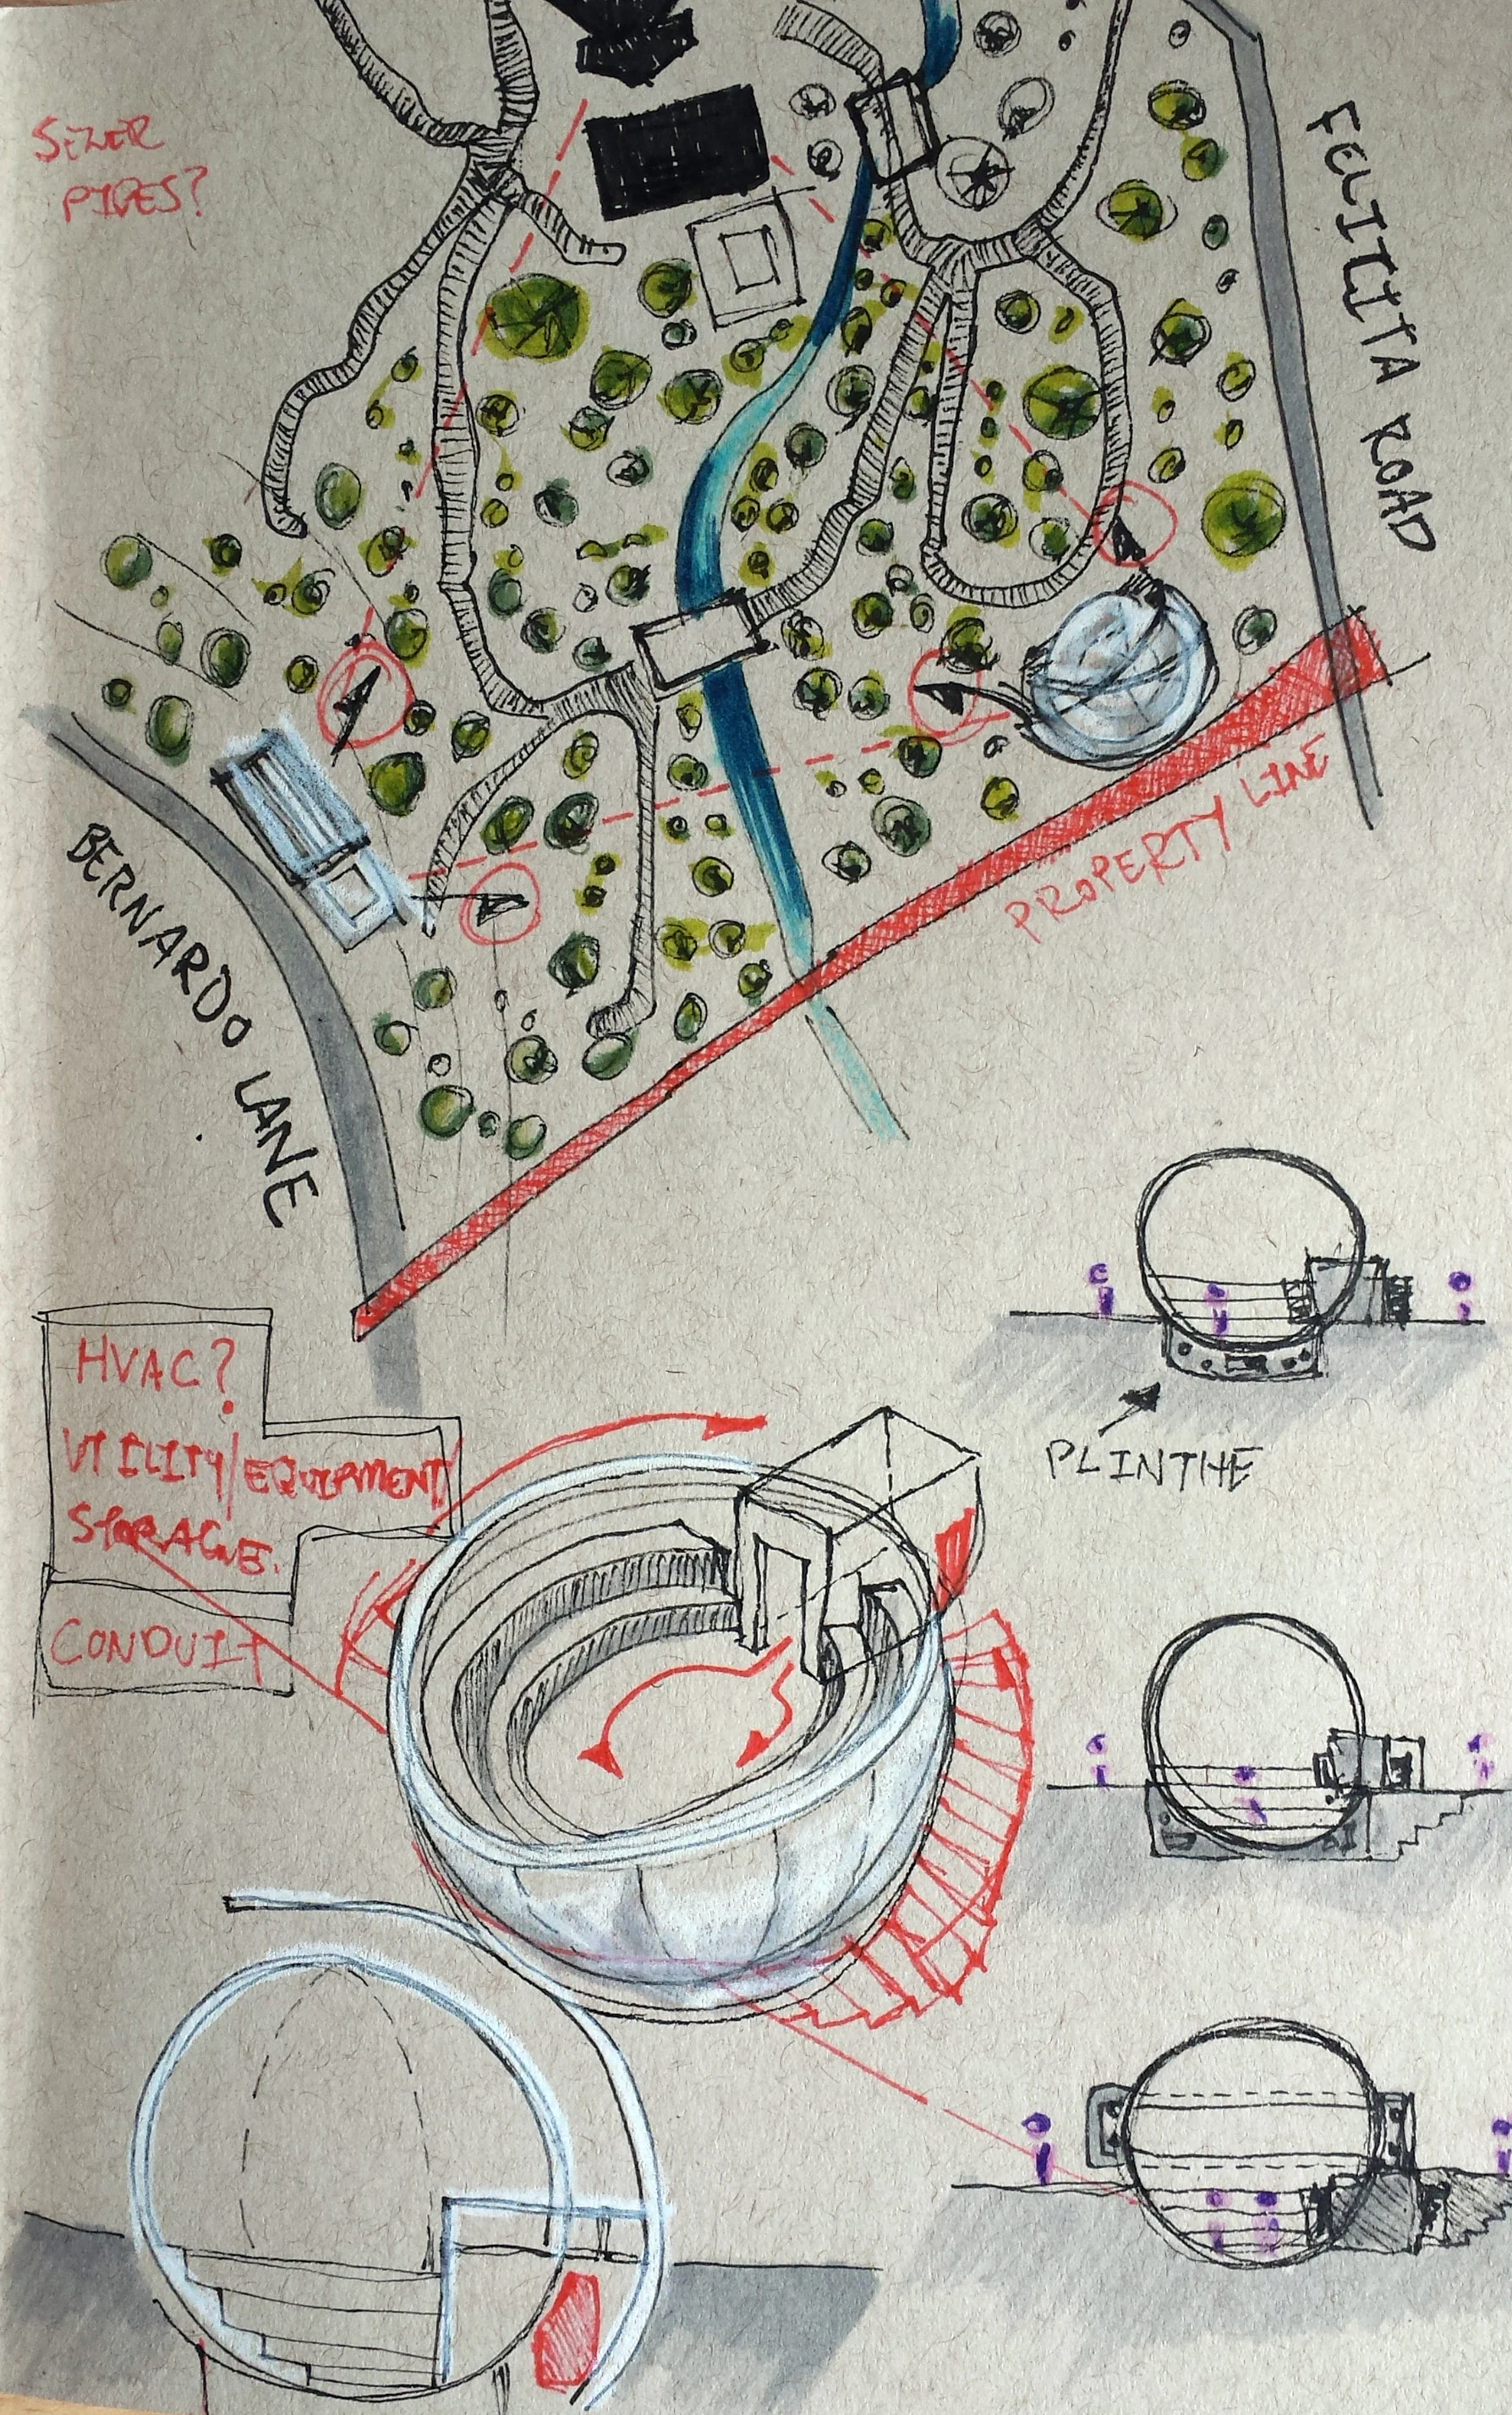 SEWER
PIPES?
FELICITA ROAD
PROPERTY LINE
BERNARDO LANE
PLINTHE
HVAC?
UTILITY/EQUIPMENT
STORAGE.
CONDUIT